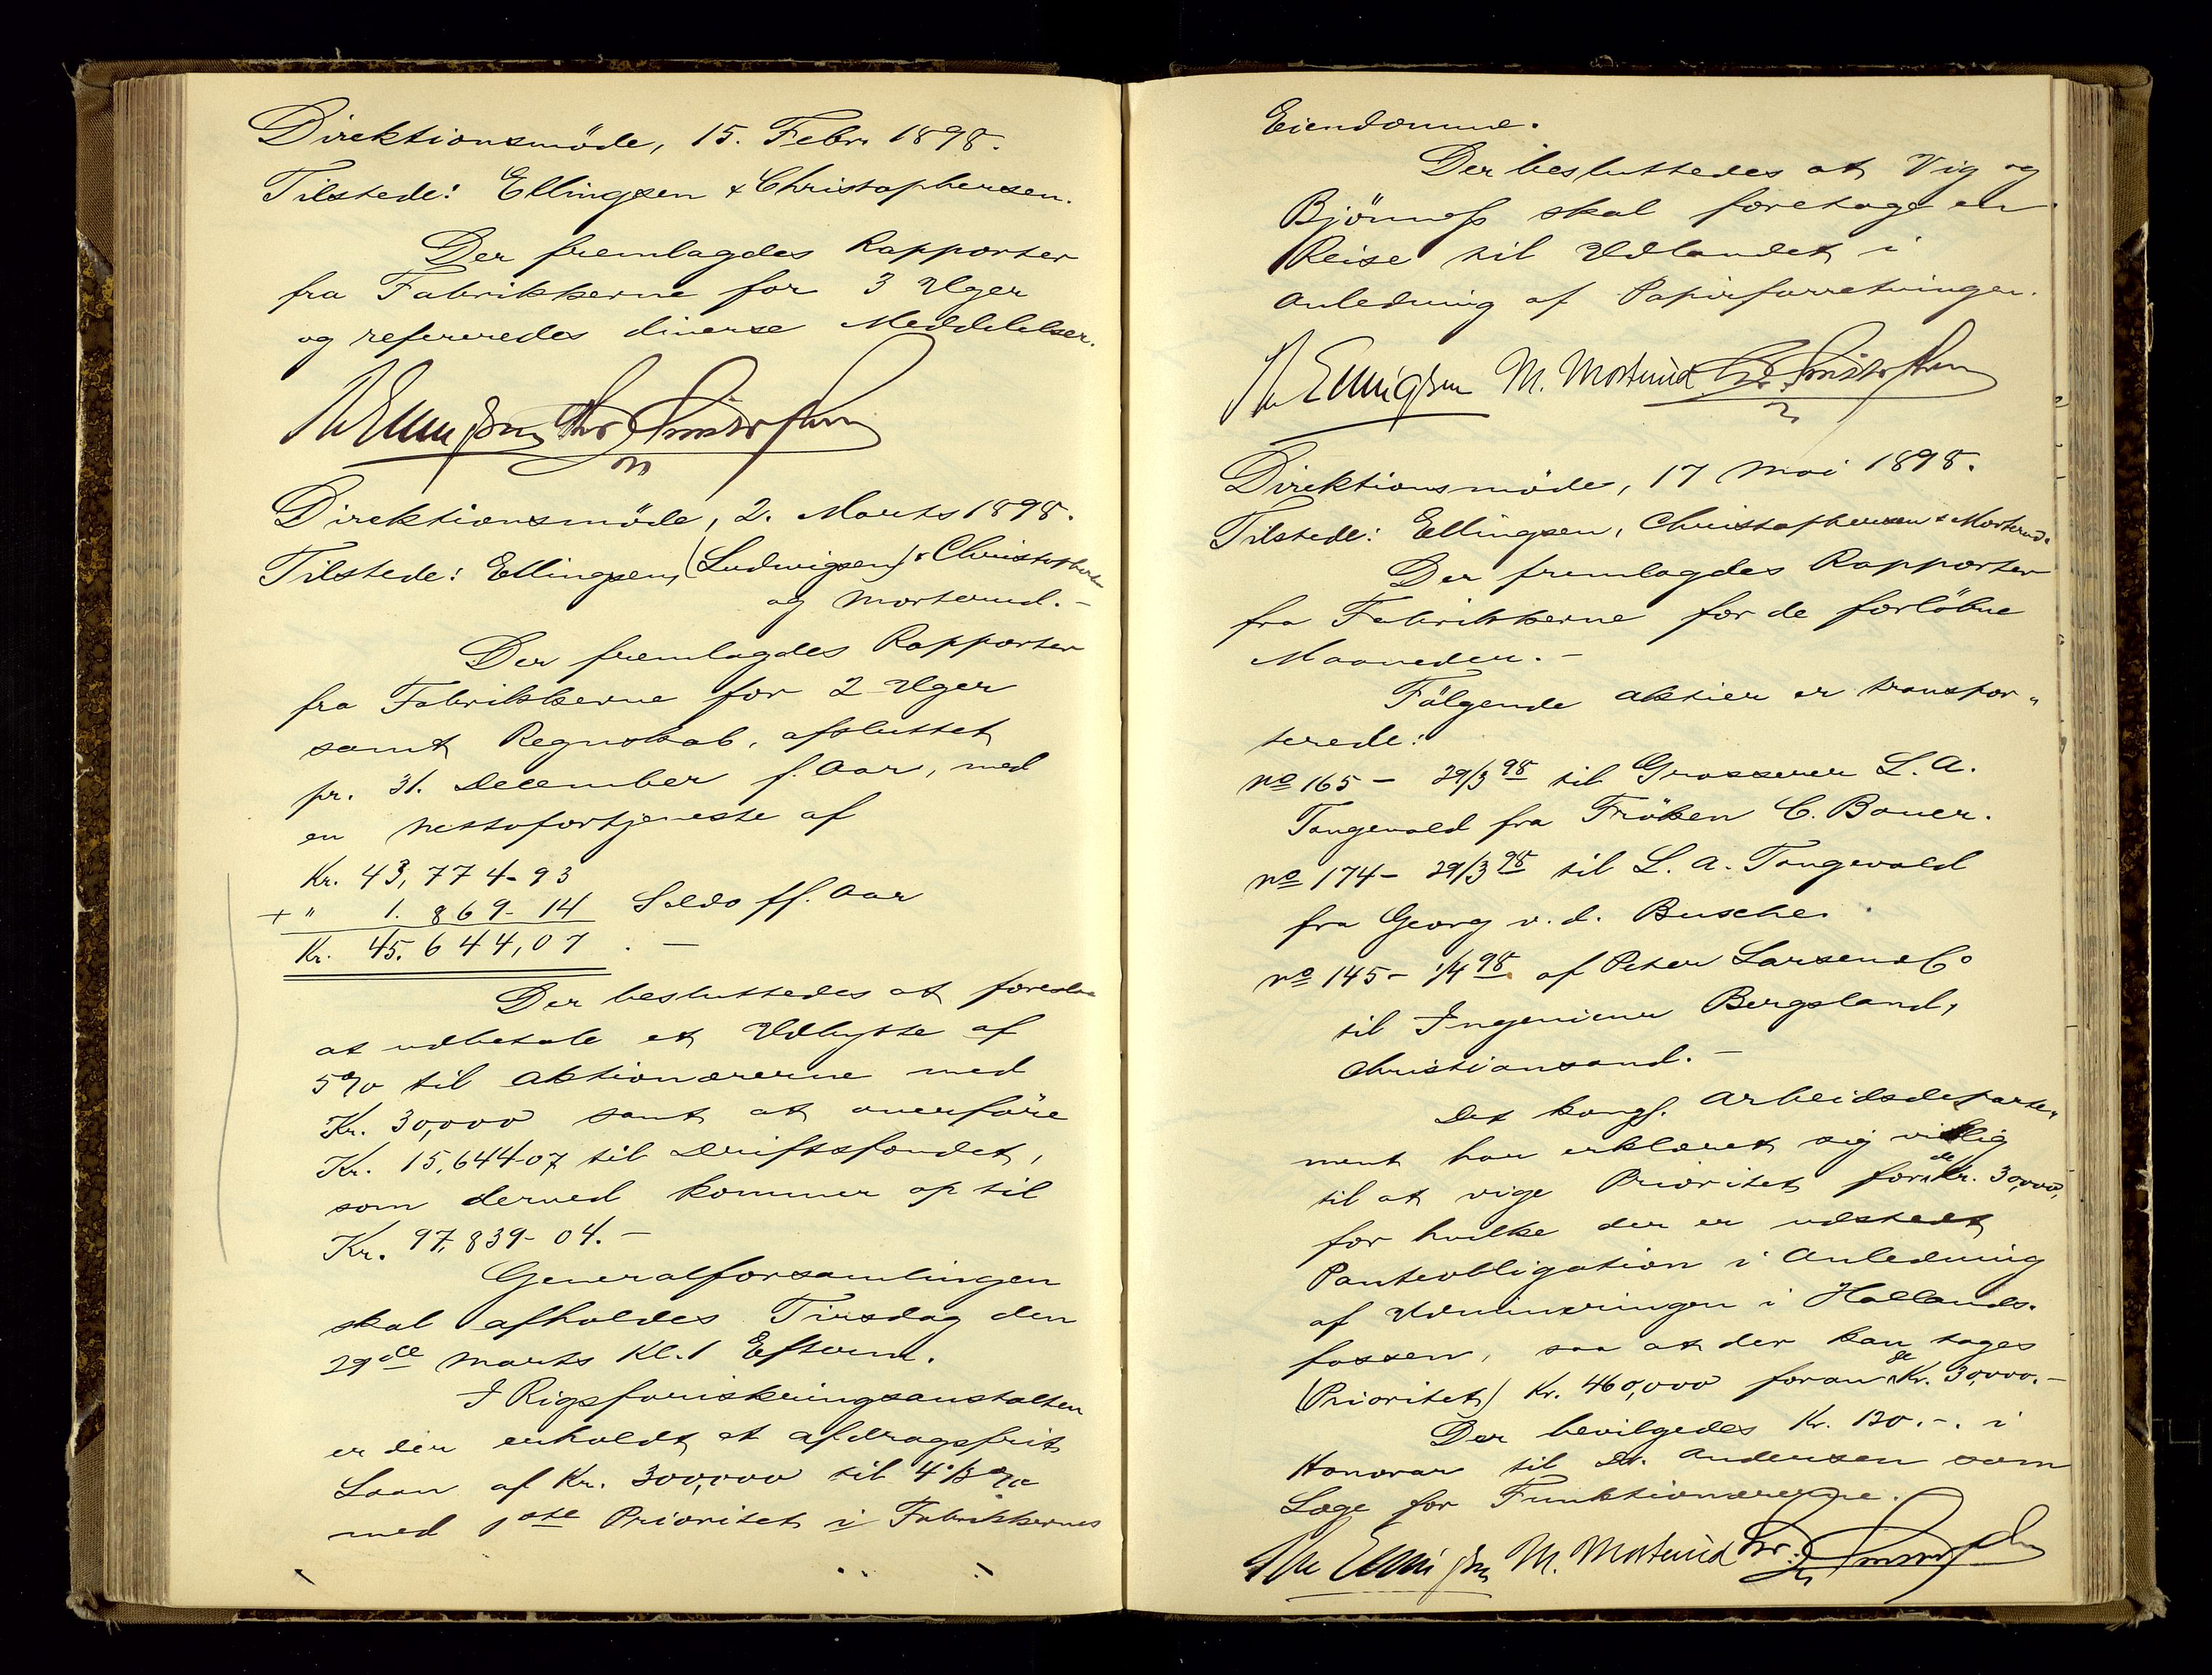 Direktionsmöde, 15. Febr. 1898.
Tilstede: Ellingsen & Christophersen.
Der fremlagdes Rapporter
fra Fabrikkerne for 3 Uger
og refereredes diverse Meddelelser.
Direktionsmöde, 2. Marts 1898.
Tilstede: Ellingsen, (Ludwigsen) & Christophersen
og Morterud.-
Der fremlagdes Rapporter
fra Fabrikkerne for 2 Uger
samt Regnskab, afsluttet
pr. 31. December f. Aar, med
en Nettofortjeneste af
Kr. 43,774-93
+ " 1.869-14 Saldo ff. Aar
Kr. 45.644,07 . -
Der besluttedes at foreslaa
at udbetale et Udbytte af
5% til Aktionærerne med
Kr. 30,000 samt at overföre
Kr. 15.644-07 til Driftsfondet,
som derved kommer op til
Kr. 97,839-04.-
Generalforsamlingen
skal afholdes Tirsdag den
29de Marts Kl. 1 Efterm.
I Rigsforsikringsanstalten
er der erholdt et afdragsfrit
Laan af Kr. 300,000 til 4 1/3 %
med 1ste Prioritet i Fabrikkernes
Eiendomme.
Der besluttedes at Vig og
Björnness skal foretage en
Reise til Udlandet i
Anledning af Papirforretningen.
M. Morterud
Direktionsmöde, 17 Mai 1898.
Tilstede: Ellingsen, Christophersen & Morterud.
Der fremlagdes Rapporter
fra Fabrikkerne for de forlöbne
Maaneder.-
Fölgende Aktier er transpor-
terede:
No 165 - 29/3 98 til Grosserer L. A.
Tangevald fra Fröken C. Bauer.
No 174 - 29/3 98 til L. A. Tangevald
fra Georg v. d. Busche.
No 145 - 1/4 98 af Peter Larsen & Co
til Ingenieur Bergsland,
Christiansand.-
Det kongl. Arbeidsdeparte-
ment har erklæret sig villig
til at vige Prioritet for de Kr. 30,000,
for hvilke der er udstedt
Panteobligation i Anledning
af Udmineringen i Hallands-
fossen, saa at der kan tages
(Prioritet) Kr. 460,000 foran de Kr. 30,000.-
Der bevilgedes Kr. 120.-. i
Honorar til Dr. Andersen som
Læge for Funktionærerne.
M. Morterud